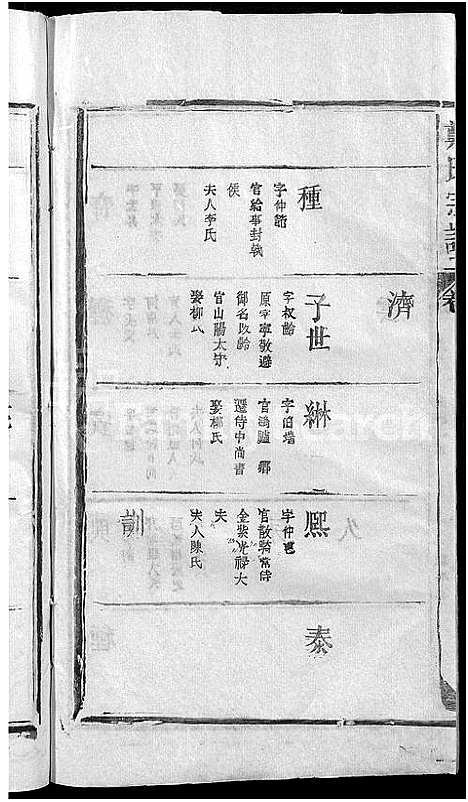 戴氏宗譜
卷
種
字仲篩
官給事封義
侯
夫人李氏
濟
子世
字叔齡
原字寧敬避
御名改齡
官山陽太守
娶柳氏
綝
字伯墙
官鴻臚卿
遷侍中尚書
娶楊氏
久
熙
字仲邕
官散騎常侍
金紫光祿大
夫
夫人陳氏
訓
泰